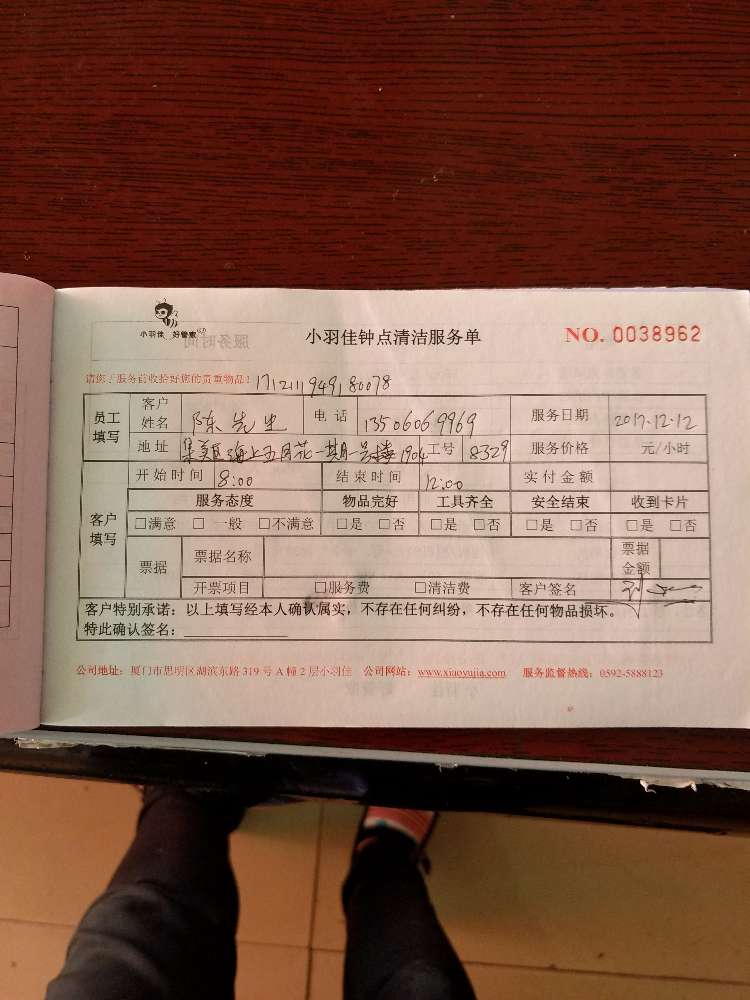 小羽佳 好管家
小羽佳钟点清洁服务单
NO. 0038962
请您于服务前收拾好您的贵重物品!
员工填写 客户姓名 陈先生 电话 13506069969 服务日期 2017.12.12
地址 集美区海上五月花一期一号楼1904 工号 8329 服务价格 元/小时
客户填写 开始时间 8:00 结束时间 12:00 实付金额
服务态度 物品完好 工具齐全 安全结束 收到卡片
□满意 □一般 □不满意 □是 □否 □是 □否 □是 □否 □是 □否
票据 票据名称 票据金额
开票项目 □服务费 □清洁费 客户签名
客户特别承诺：以上填写经本人确认属实，不存在任何纠纷，不存在任何物品损坏。
特此确认签名：
公司地址：厦门市思明区湖滨东路319号A幢2层小羽佳 公司网站：www.xiaoyujia.com 服务监督热线：0592-5888123